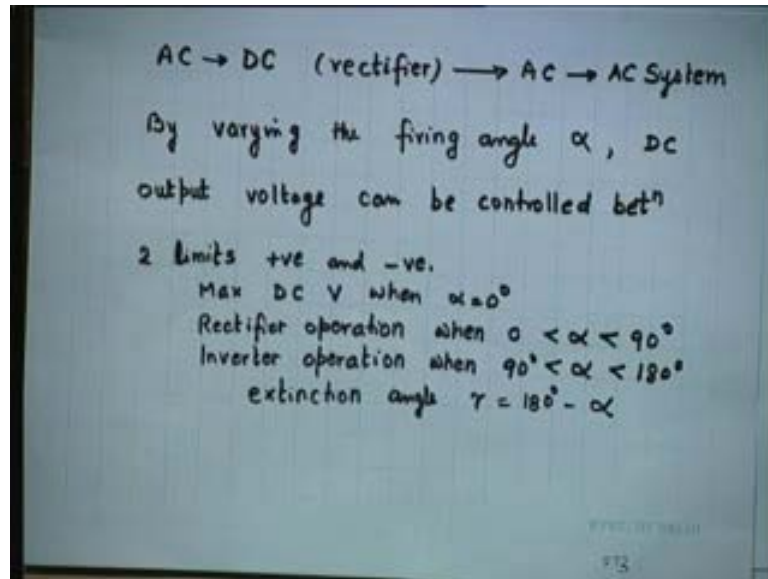 AC → DC (rectifier) → AC → AC System
By varying the firing angle α, DC
output voltage can be controlled betⁿ
2 limits +ve and -ve.
Max DC V when α=0°
Rectifier operation when 0 < α < 90°
Inverter operation when 90° < α < 180°
extinction angle γ = 180° - α